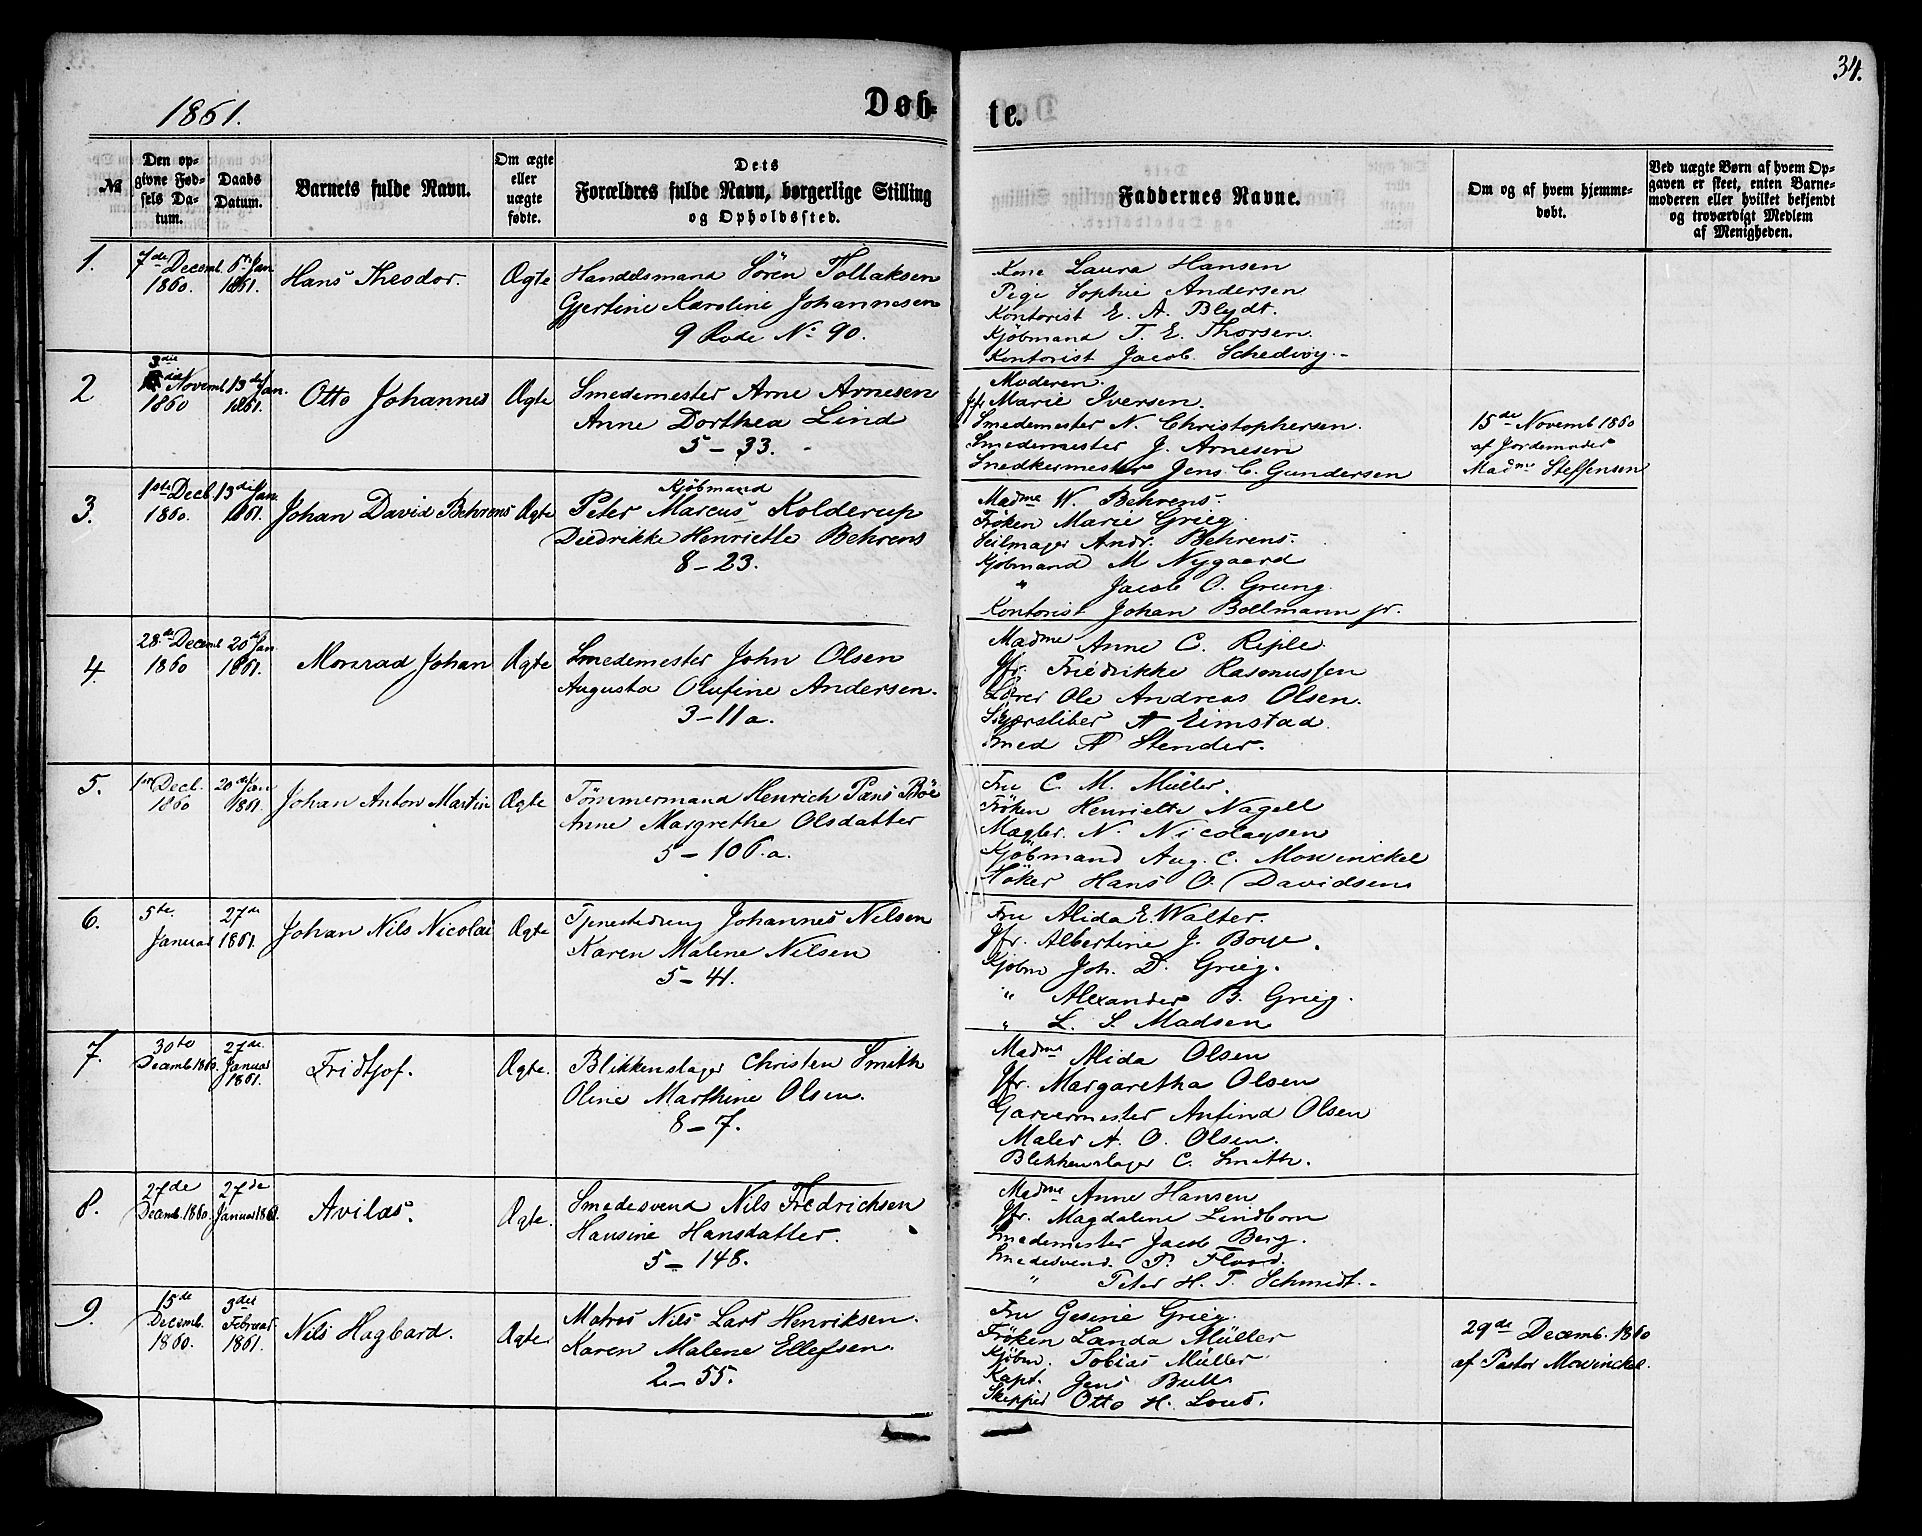 34.
1861.
Døbte.
№
Den opgivne Fødsels Datum.
Daabs Datum.
Barnets fulde Navn.
Om ægte eller uægte fødte.
Dets Forældres fulde Navn, borgerlige Stilling og Opholdssted.
Faddernes Navne.
Om og af hvem hjemmedøbt.
Ved uægte Børn af hvem Opgaven er skeet, enten Barnemoderen eller hvilket bekjendt og troværdigt Medlem af Menigheden.
1.
7de Decemb. 1860.
6te Jan 1861.
Hans Theodor.
Ægte
Handelsmand Sören Tollaksen
Gjertine Karoline Johannesen
9 Rode No 90.
Kone Laura Hansen
Pige Sophie Andersen
Kontorist E. A. Blydt.
Kjöbmand T. E. Thorsen.
Kontorist Jacob Schedivy.
2
3die Novemb. 1860
13de Jan. 1861.
Otto Johannes
Ægte
Smedemester Arne Arnesen
Anne Dorthea Lind
5 – 33.
Moderen.
Jfr Marie Iversen.
Smedemester N. Christophersen.
Smedemester J. Arnesen
Snedkermester Jens C. Gundersen
15de Novemb 1860
af Jordemoder
Madme Steffensen
3.
1ste Decb. 1860.
13de Jan. 1861.
Johan David Behrens
Ægte
Kjöbmand
Peter Marcus Kolderup
Diedrikke Henriette Behrens
8 – 23.
Madme W. Behrens.
Fröken Marie Grieg.
Seilmager Andr. Behrens.
Kjöbmand M Nygaard
" Jacob O. Grung.
Kontorist Johan Bollmann jr.
4.
28de Decemb 1860
20de Jan. 1861.
Monrad Johan
Ægte
Smedemester John Olsen
Augusta Olufine Andersen.
3 – 11 a.
Madme Anne C. Reple.
Jfr. Friedrikke Rasmussen
Lörer Ole Andreas Olsen.
Skjærsliber A Eimstad.
Smed A Stender.
5.
1ste Decb. 1860
20de Jan 1861.
Johan Anton Martin
Ægte
Tömmermand Henrich Pans Böe
Anne Margrethe Olsdatter
5 – 106.a.
Fru C. M. Müller.
Fröken Henriette Nagell
Mægler. N. Nicolaysen
Kjöbmand Aug. C. Mowinckel
Höker Hans O. Davidsen
6.
5te Januar
27de 1861.
Johan Nils Nicolai
Ægte
Tjenestedreng Johannes Nilsen
Karen Malene Nilsen
5 – 41.
Fru Alida E. Walter.
Jfr. Albertine J. Boye.
Kjöbm Joh. D. Grieg.
" Alexander B. Grieg.
" L. S. Madsen
7.
30te Decemb 1860.
27de Januar 1861.
Fridtjof.
Ægte.
Blikkenslager Christen Smith
Oline Marthine Olsen.
8 – 7.
Madme Alida Olsen
Jfr. Margaretha Olsen
Garvermester Anfind Olsen
Maler A. O. Olsen.
Blikkenslager C. Smith.
8.
27de Decemb. 1860.
27de Januar 1861.
Avilas.
Ægte.
Smedesvend Nils Fredrichsen
Hansine Hansdatter.
5 – 148.
Madme Anne Hansen
Jfr. Magdalene Lindborn
Smedemester Jacob Berg.
Smedesvend. P. Floord.
" Peter H. T. Schmidt.
9.
15de Decemb. 1860.
3die Februar 1861.
Nils Hagbard.
Ægte
Matros Nils Lars Henriksen.
Karen Malene Ellefsen.
2 – 55.
Fru Gesine Grieg.
Fröken Landa Müller
Kjöbm. Tobias Müller
Kapt. Jens Bull
Skipper Otto H. Lous.
29de Decemb. 1860
af Pastor Mowinckel.